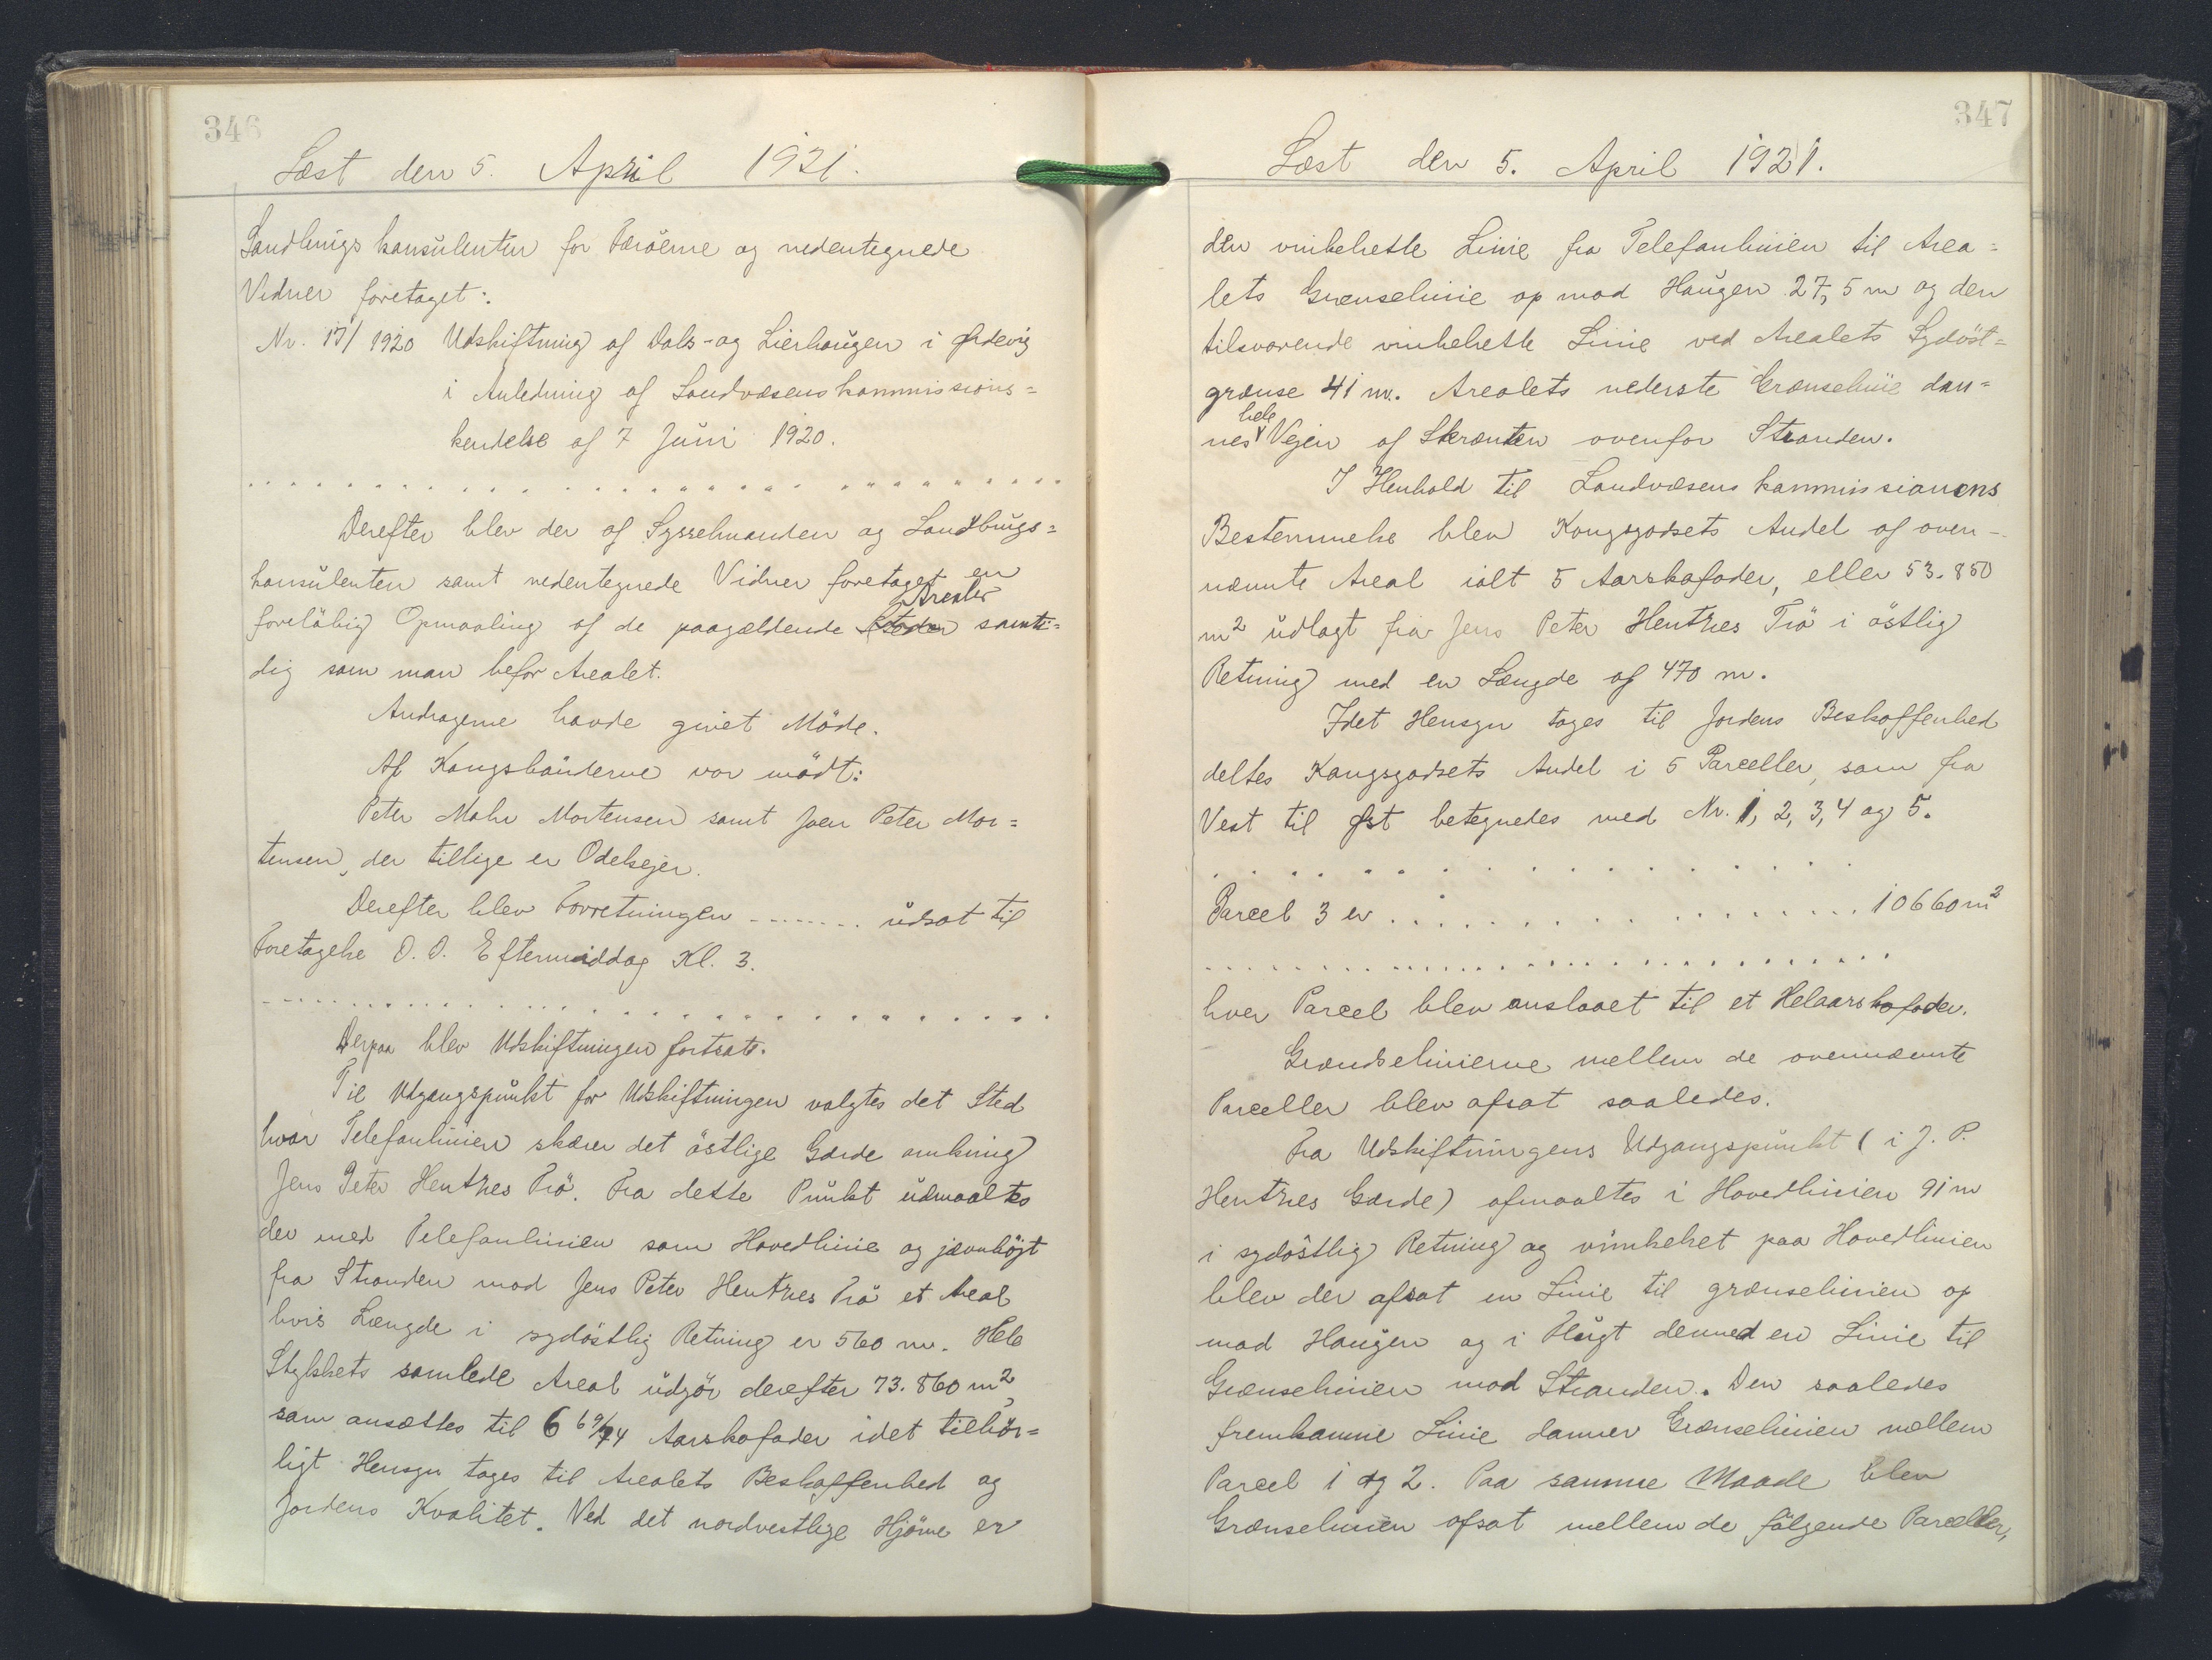 346
Læst den 5. April 1921.
Landbrugskonsulenten for Færöerne og nedentegnede
Vidner foretaget:
Nr. 17/1920 Udskiftning af Dals- og Lierhaugen i Ørdevig
i Anledning af Landvæsenskommissions=
kendelse af 7 Juni 1920.
Derefter blev der af Sysselmanden og Landbrugs=
konsulenten samt nedentegnede Vidner foretaget en
forelöbig Opmaaling af de paagældende Arealer samti=
dig som man befor Arealet.
Andragerne havde givet Möde.
Af Kongsbönderne var mödt:
Peter Mohr Mortensen samt Joen Peter Mor=
tensen, der tillige er Odelsejer.
Derefter blev Forretningen -------- udsat til
Foretagelse D. D. Eftermiddag Kl. 3.
Derpaa blev Udskiftningen fortsat.
Til Udgangspunkt for Udskiftningen valgtes det Sted
hvor Telefonlinien skærer det östlige Gærde omkring
Jens Peter Hentzes Trö. Fra dette Punkt udmaaltes
der med Telefonlinien som Hovedlinie og jævnhöjt
fra Stranden mod Jens Peter Hentzes Trö et Areal
hvis Længde i sydöstlig Retning er 560 m. Hele
Stykkets samlede Areal udgör derefter 73.860 m2,
som ansættes til 6 69/74 Aarskofoder idet tilbör=
ligt Hensyn tages til Arealets Beskaffenhed og
Jordens Kvalitet. Ved det nordvestlige Hjörne er
347
Læst den 5. April 1921.
den vinkelrette Linie fra Telefonlinien til Area=
lets Grænselinie op mod Haugen 27,5 m og den
tilsvarende vinkelrette Linie ved Arealets Sydöst=
grænse 41 m. Arealets nederste Grænselinie dan=
nes hele Vejen af Skrænten ovenfor Stranden.
I Henhold til Landvæsenskommissionens
Bestemmelse blev Kongsgodsets Andel af oven-
nævnte Areal ialt 5 Aarskofoder, eller 53.850
m2 udlagt fra Jens Peter Hentzes Trö i östlig
Retning med en Længde af 470 m.
Idet Hensyn tages til Jordens Beskaffenhed
deltes Kongsgodsets Andel i 5 Parceller, som fra
Vest til Øst betegnedes med Nr. 1, 2, 3, 4 og 5.
Parcel 3 er .................. 10660 m2
hver Parcel blev anslaaet til et Helaarskofoder.
Grændselinierne mellem de ovennævnte
Parceller blev afsat saaledes.
Fra Udskiftningens Udgangspunkt (i J. P.
Hentzes Gærde) afmaaltes i Hovedlinien 91 m
i sydöstlig Retning og vinkelret paa Hovedlinien
blev der afsat en Linie til grænselinien op
mod Haugen og i Flugt dermed en Linie til
Grænselinien mod Stranden. Den saaledes
fremkomne Linie danner Grænselinien mellem
Parcel 1 og 2. Paa samme Maade blev
Grænselinien afsat mellem de fölgende Parceller,